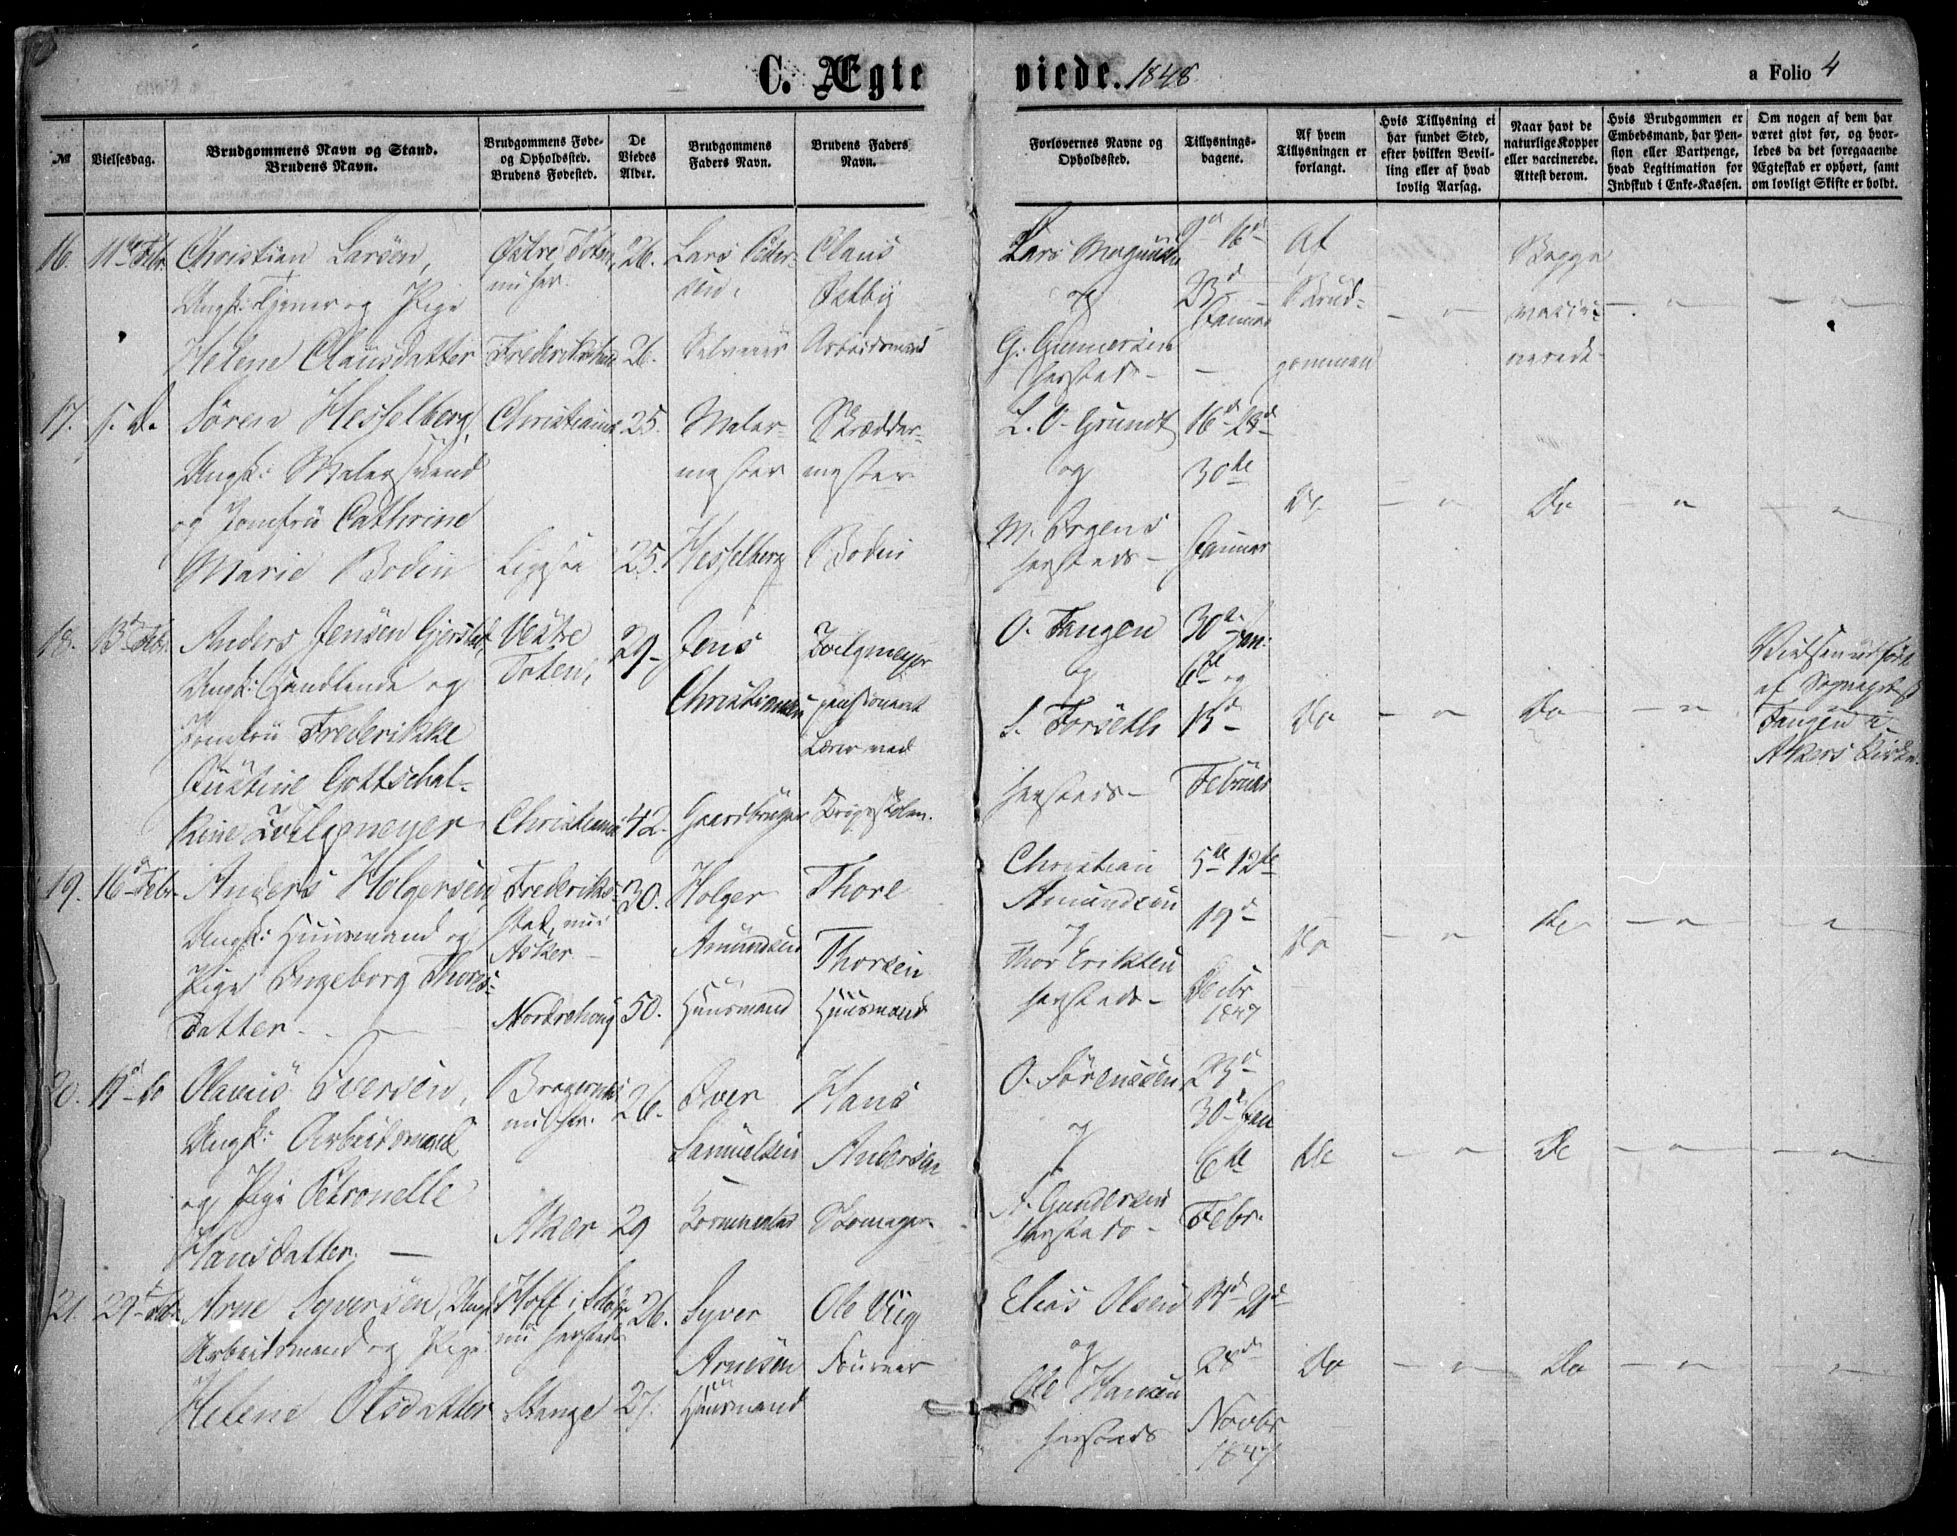 C. Ægteviede. 1848.
a Folio 4
№
Vielsesdag.
Brudgommens Navn og Stand.
Brudens Navn.
Brudgommens Føde-
og Opholdssted.
Brudens Fødested.
De
Viedes
Alder.
Brudgommens
Faders Navn.
Brudens Faders
Navn.
Forlovernes Navne og
Opholdssted.
Tillysnings-
dagene.
Af hvem
Tillysningen er
forlangt.
Hvis Tillysning ei
har fundet Sted,
efter hvilken Bevil-
ling eller af hvad
lovlig Aarsag.
Naar havt de
naturlige Kopper
eller vaccinerede.
Attest derom.
Hvis Brudgommen er
Embedsmand, har Pen-
sion eller Vartpenge,
hvad Legitimation for
Indskud i Enke-Kassen.
Om nogen af dem har
været givt før, og hvor-
ledes da det foregaaende
Ægteskab er ophørt, samt
om lovligt Skifte er holdt.
16.
11te Febr
Christian Larsen,
Ungk: Tjener og Pige
Helene Clausdatter
Østre Toten,
nu her.
26.
26.
Lars Peder-
sen,
Claus
Sætby
Arbeidsmand
Lars Magnusen
og
G. Gunnersen
hersteds -
9de 16de
23de
Januar
Af
Brud-
gommen
Begge
vacci-
nerede.
17.
Søren Hesselberg,
Ungk: Malersvend
og Jomfru Cathrine
Marie Bodin
Christiania
25.
25.
Maler-
mester
Hesselberg
Skrædder-
mester
Bodin
L. O. Grundt
og
hersteds -
16de 23de
30te
Januar
Do
Do
18.
13de Febr.
Anders Jensen Gjerslet,
Ungk: Handlende og
Jomfru Frederikke
Justine Gottschal-
kine Zoelgmeyer
Vestre
Toten,
Christiania
29
42.
Jens
Christiansen
Gaardbruger
Zoelgmeyer
pensioneret
Lærer ved
Krigsskolen.
O. Tangen
og
S. Forseth
hersteds -
30te Jan:
6te og
13de
Februar
Do
Do
Vielsen udført
af Sognepræst
Tangen i
Akers Kirke.
19.
16de Febr
Anders Holgersen,
Ungk: Huusmand og
Pige Ingeborg Thores-
datter.
Frederiks-
stad, nu i
Asker
Norderhoug
30.
50.
Holger
Amundsen
Huusmand
Thore
Thorsen
Huusmand
Christian
Amundsen
og
Thor Eriksen
hersteds -
5te 12te
19de
Decbr
1847
Do
Do
20.
19de do
Olaus Iversen,
Ungk: Arbeidsmand
og Pige Petronelle
Hansdatter.
Bragernes
nu her.
Aker
26.
29
Iver
Samuelsen
Hans
Andersen
Skomager
O. Sørenssen
og
A. Gundersen
hersteds -
23de
30te Jan
6te
Febr.
Do
Do
21.
29de Feb.
Arne Syversen, Ungk
Arbeidsmand og Pige
Helene Olsdatter
Hoff i Solør
nu hersteds
Stange
26.
27.
Syver
Arnesen
Huusmand
Ole Viig
Elias Olsen
og
Ole Hansen
hersteds
14de 21de
28de
Novbr
1847
Do
Do